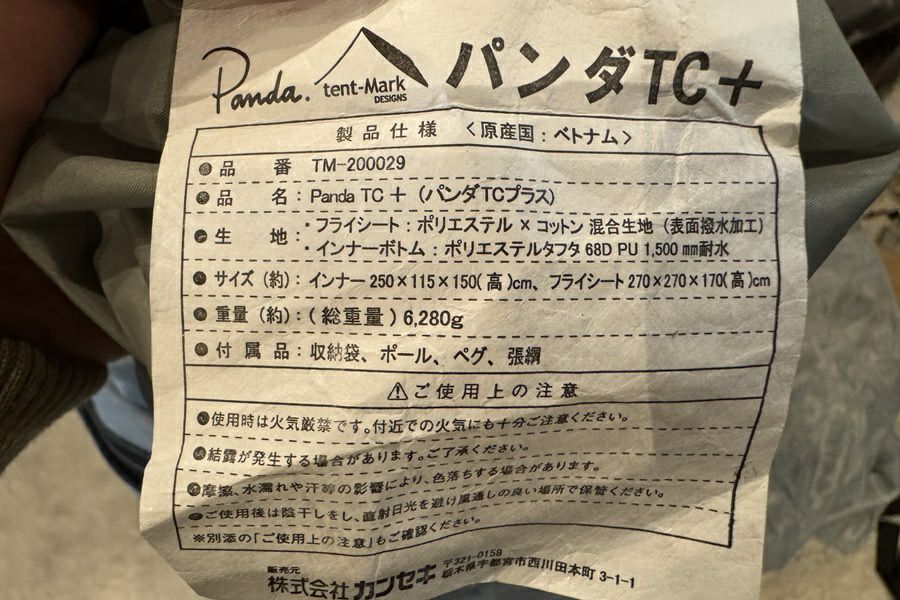 Panda. tent-Mark DESIGNS パンダTC+
製品仕様 〈原産国：ベトナム〉
●品 番 TM-200029
●品 名：Panda TC + (パンダTCプラス)
●生 地：・フライシート：ポリエステル × コットン 混合生地（表面撥水加工）
・インナーボトム：ポリエステルタフタ 68D PU 1,500 ㎜耐水
●サイズ（約）：インナー 250×115×150(高)cm、フライシート 270×270×170(高)cm
●重量（約）：(総重量) 6,280g
●付属品：収納袋、ポール、ペグ、張綱
⚠ご使用上の注意
●使用時は火気厳禁です。付近での火気にも十分ご注意ください。
●結露が発生する場合があります。ご了承ください。
●摩擦、水濡れや汗等の影響により、色落ちする場合があります。
●ご使用後は陰干しをし、直射日光を避け風通しの良い場所で保管ください。
※別添の「ご使用上の注意」もご確認ください。
販売元 株式会社 カンセキ 〒321-0158
栃木県宇都宮市西川田本町 3-1-1